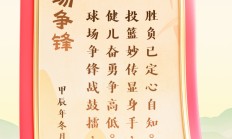 场争锋
甲辰年冬月
球场争锋战鼓擂
健儿奋勇争高低。
投篮妙传显身手
胜负已定心自知。